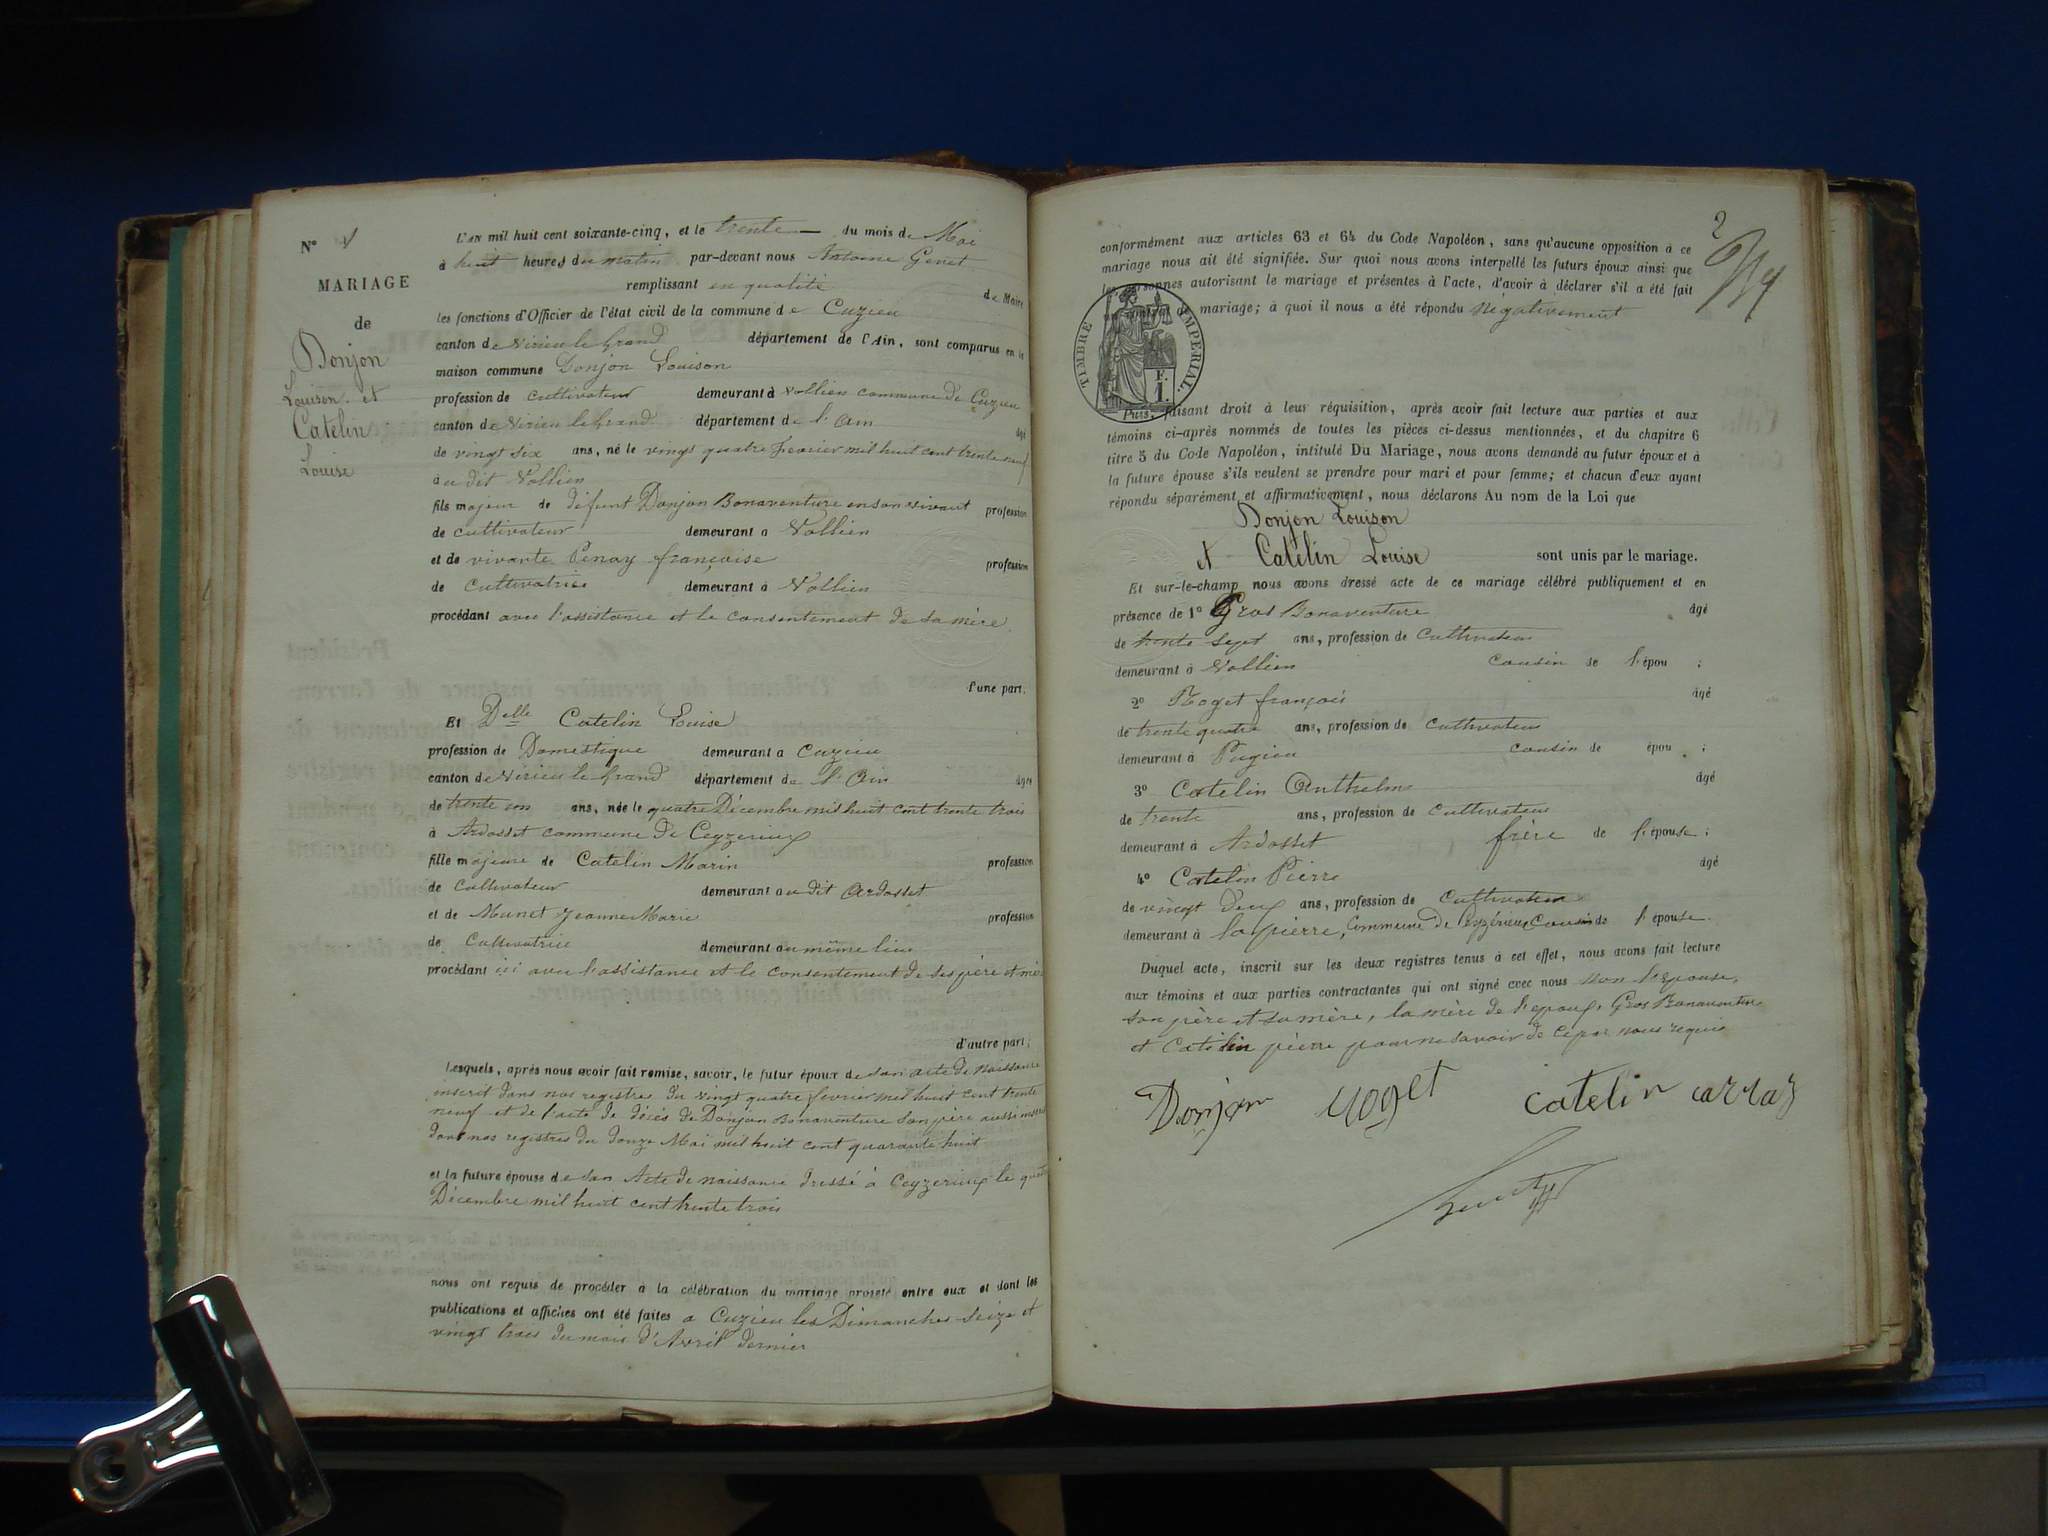 N° 1
MARIAGE
de
Donjon
Louison et
Catelin
Louise
L'AN mil huit cent soixante-cinq, et le trente du mois de Mai
à huit heures du matin par-devant nous Antoine Genet
remplissant en qualité de Maire
les fonctions d'Officier de l'état civil de la commune de Cuzieu
canton de Virieu le Grand département de l'Ain, sont comparus en la
maison commune Donjon Louison
profession de cultivateur demeurant à Vollien commune de Cuzieu
canton de Virieu le Grand département de l'Ain âgé
de vingt six ans, né le vingt quatre fevrier mil huit cent trente neuf
au dit Vollien
fils majeur de défunt Donjon Bonaventure en son vivant profession
de cultivateur demeurant a Vollien
et de vivante Penay françoise profession
de cultivatrice demeurant à Vollien
procédant avec l'assistance et le consentement de sa mère
d'une part.
Et Delle Catelin Louise
profession de Domestique demeurant a Cuzieu
canton de Virieu le Grand département de l'Ain âgée
de trente un ans, née le quatre Décembre mil huit cent trente trois
à Ardosset commune de Ceyzerieux
fille majeure de Catelin Marin profession
de cultivateur demeurant au dit Ardosset
et de Munet Jeanne Marie profession
de cultivatrice demeurant au même lieu
procédant ici avec l'assistance et le consentement de ses père et mère
d'autre part;
Lesquels, après nous avoir fait remise, savoir, le futur époux de son acte de naissance
inscrit dans nos registres du vingt quatre fevrier mil huit cent trente
neuf et de l'acte de décès de Donjon Bonaventure son père aussi inscrit
dans nos registres du douze Mai mil huit cent quarante huit
et la future épouse de son Acte de naissance dressé à Ceyzerieux le quatre
Décembre mil huit cent trente trois
nous ont requis de procéder à la célébration du mariage projeté entre eux et dont les
publications et affiches ont été faites a Cuzieu les Dimanches seize et
vingt trois du mois d'Avril dernier
2
conformément aux articles 63 et 64 du Code Napoléon, sans qu'aucune opposition à ce
mariage nous ait été signifiée. Sur quoi nous avons interpellé les futurs époux ainsi que
les personnes autorisant le mariage et présentes à l'acte, d'avoir à déclarer s'il a été fait
mariage; à quoi il nous a été répondu négativement
TIMBRE IMPÉRIAL.
F.
1.
Puis, faisant droit à leur réquisition, après avoir fait lecture aux parties et aux
témoins ci-après nommés de toutes les pièces ci-dessus mentionnées, et du chapitre 6
titre 5 du Code Napoléon, intitulé Du Mariage, nous avons demandé au futur époux et à
la future épouse s'ils veulent se prendre pour mari et pour femme; et chacun d'eux ayant
répondu séparément et affirmativement, nous déclarons Au nom de la Loi que
Donjon Louison
et Catelin Louise sont unis par le mariage.
Et sur-le-champ nous avons dressé acte de ce mariage célébré publiquement et en
présence de 1° Gros Bonaventure âgé
de trente sept ans, profession de cultivateur
demeurant à Vollien cousin de l'épou ;
2° Roget françois âgé
de trente quatre ans, profession de cultivateur
demeurant à Pugieu cousin de épou ;
3° Catelin Anthelme âgé
de trente ans, profession de cultivateur
demeurant à Ardosset frère de l'épouse ;
4° Catelin Pierre âgé
de vingt deux ans, profession de cultivateur
demeurant à la pierre, Commune de Ceyzérieux Cousin de l'épouse.
Duquel acte, inscrit sur les deux registres tenus à cet effet, nous avons fait lecture
aux témoins et aux parties contractantes qui ont signé avec nous non l'épouse,
son père et sa mère, la mère de l'epoux, Gros Bonaventure
et Catelin pierre pour ne savoir de ce par nous requis
Donjon Roget catelin